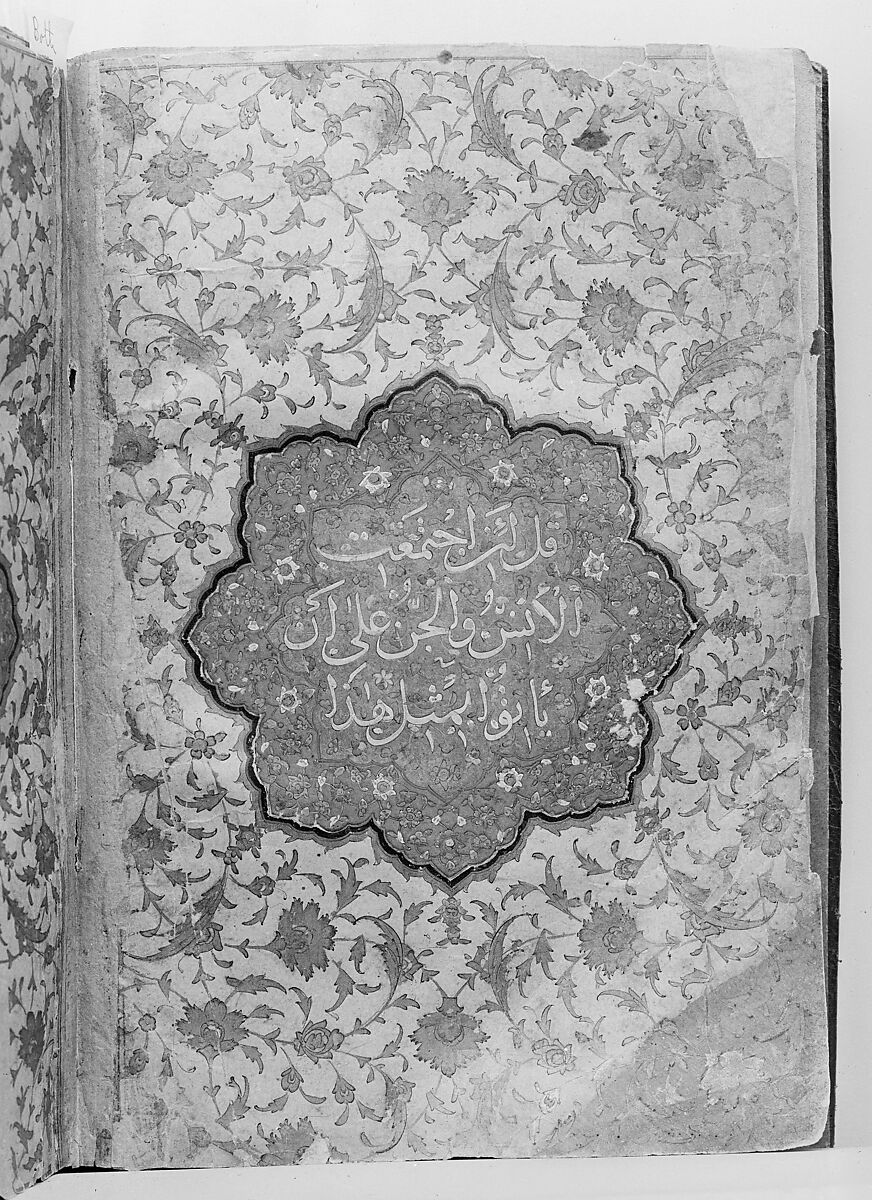 قُل لَئِنِ اجْتَمَعَتِ
الْاِنْسُ وَالْجِنُّ عَلٰى اَنْ
يَأْتُوا بِمِثْلِ هٰذَا